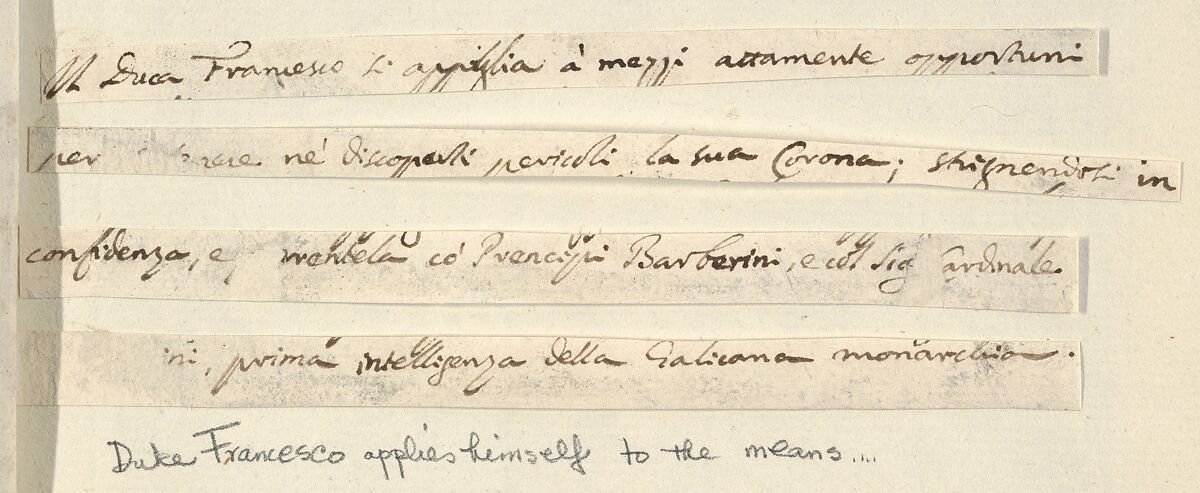 Il Duca Francesco si appiglia à mezzi attamente opportuni
per ne' discoperti pericoli la sua Corona; strignendosi in
confidenza, e co' Prencipi Barberini, e col Sig Cardinale
prima intelligenza della Galicana monarchia.
Duke Francesco applies himself to the means....